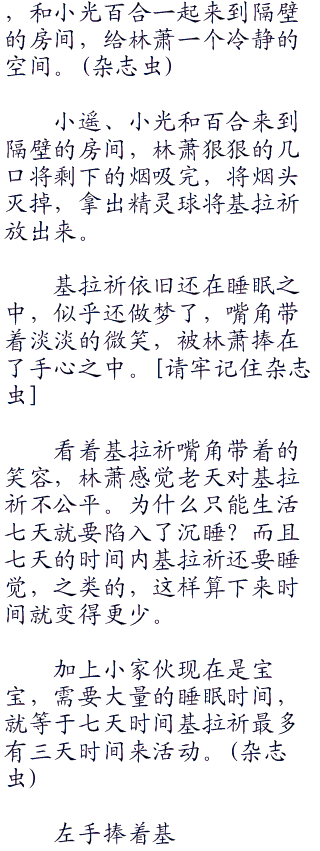 ，和小光百合一起来到隔壁
的房间，给林萧一个冷静的
空间。(杂志虫)
小遥、小光和百合来到
隔壁的房间，林萧狠狠的几
口将剩下的烟吸完，将烟头
灭掉，拿出精灵球将基拉祈
放出来。
基拉祈依旧还在睡眠之
中，似乎还做梦了，嘴角带
着淡淡的微笑，被林萧捧在
了手心之中。[请牢记住杂志
虫]
看着基拉祈嘴角带着的
笑容，林萧感觉老天对基拉
祈不公平。为什么只能生活
七天就要陷入了沉睡？而且
七天的时间内基拉祈还要睡
觉，之类的，这样算下来时
间就变得更少。
加上小家伙现在是宝
宝，需要大量的睡眠时间，
就等于七天时间基拉祈最多
有三天时间来活动。(杂志
虫)
左手捧着基